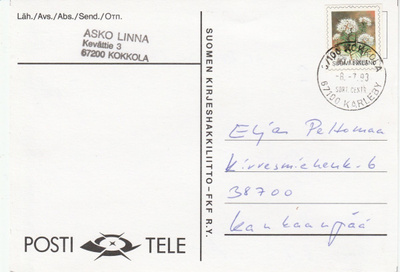 Läh./Avs./Abs./Send./Отп.
ASKO LINNA
Kevättie 3
67200 KOKKOLA
SUOMEN KIRJESHAKKILIITTO–FKF R.Y.
POSTI TELE
67100 KOKKOLA
-8.-7.93
67100 KARLEBY
Eljas Peltomaa
38700
Kankaanpää